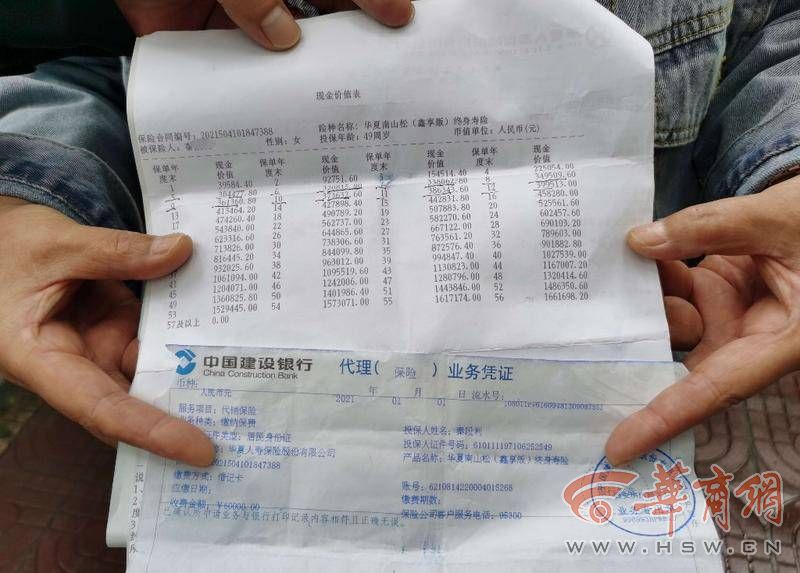 现金价值表
保险合同编号：2021504101847388 险种名称：华夏南山松（鑫享版）终身寿险
被保险人：秦 性别：女 投保年龄：49周岁 币值单位：人民币(元)
保单年度末 现金价值 保单年度末 现金价值 保单年度末 现金价值 保单年度末 现金价值
1 39584.40 2 92751.60 3 154514.40 4 225054.00
349509.60
361360.80 10
13 413464.20 14 427898.40 15 442831.80 16 458280.00
17 474260.40 18 490789.20 19 507883.80 20 525561.60
543840.00 22 562737.00 23 582270.60 24 602457.60
623316.60 26 644865.60 27 667122.00 28 690103.20
713826.00 30 738306.60 31 763561.20 32 789603.00
816445.20 34 844099.80 35 872576.40 36 901882.80
932025.60 38 963012.00 39 994847.40 40 1027539.00
41 1061094.00 42 1095519.60 43 1130823.00 44 1167007.20
45 1204071.00 46 1242006.00 47 1280796.00 48 1320414.60
49 1360825.80 50 1401986.40 51 1443846.00 52 1486350.60
53 1529445.00 54 1573071.00 55 1617174.00 56 1661698.20
57及以上 0.00
中国建设银行 代理（ 保险 ）业务凭证
China Construction Bank
币种：人民币元 2021 年 01 月 01 日 流水号：
服务项目：代销保险 投保人姓名：秦段利
业务种类：缴纳保费 投保人证件号码：610111197106252549
证件类型：居民身份证 产品名称：华夏南山松（鑫享版）终身寿险
华夏人寿保险股份有限公司
2021504101847388 账号：6210814220004015268
缴费方式：借记卡 缴费期数：
应缴日期： 保险公司客户服务电话：95300
收费金额：¥60000.00
已确认所申请业务与银行打印记录内容相符且正确无误。
业务专用章
华商网
WWW.HSW.CN